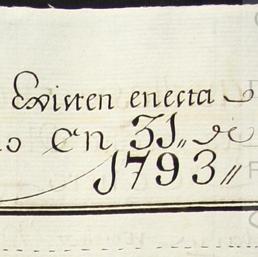 Existen enesta
o en 31,, de
1793,,